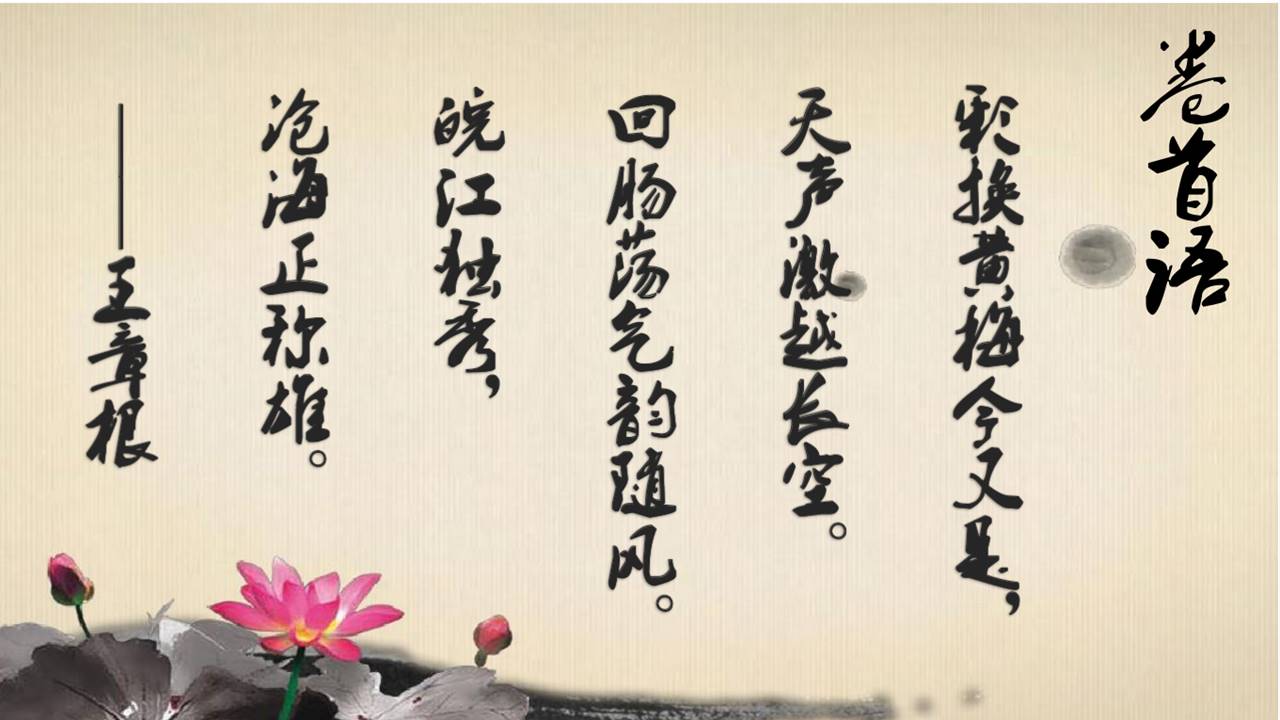 卷首语
彩换黄梅今又是，
天声激越长空。
回肠荡气韵随风。
皖江独秀，
沧海正称雄。
——王章根